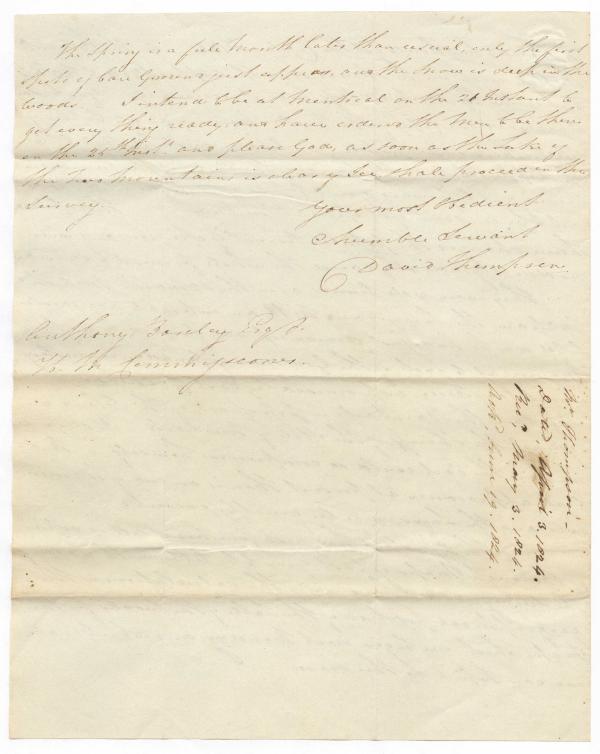 The Spring is a full Month later than usual, only the first
spots of bare Ground just appear, and the Snow is deep in the
Woods. I intend to be at Montreal on the 21 Instant to
get every thing ready, and have ordered the Men to be there
on the 26th Inst. and please God, as soon as the Lake of
the two Mountains is clear of Ice, shall proceed on the
Survey.
Your most Obedient
Humble Servant
David Thompson.
Anthony Barclay Esqr.
H. M. Commissioner.
Mr. Thompson
Dated April 3. 1824.
Recd. May 3. 1824.
June 19. 1824.